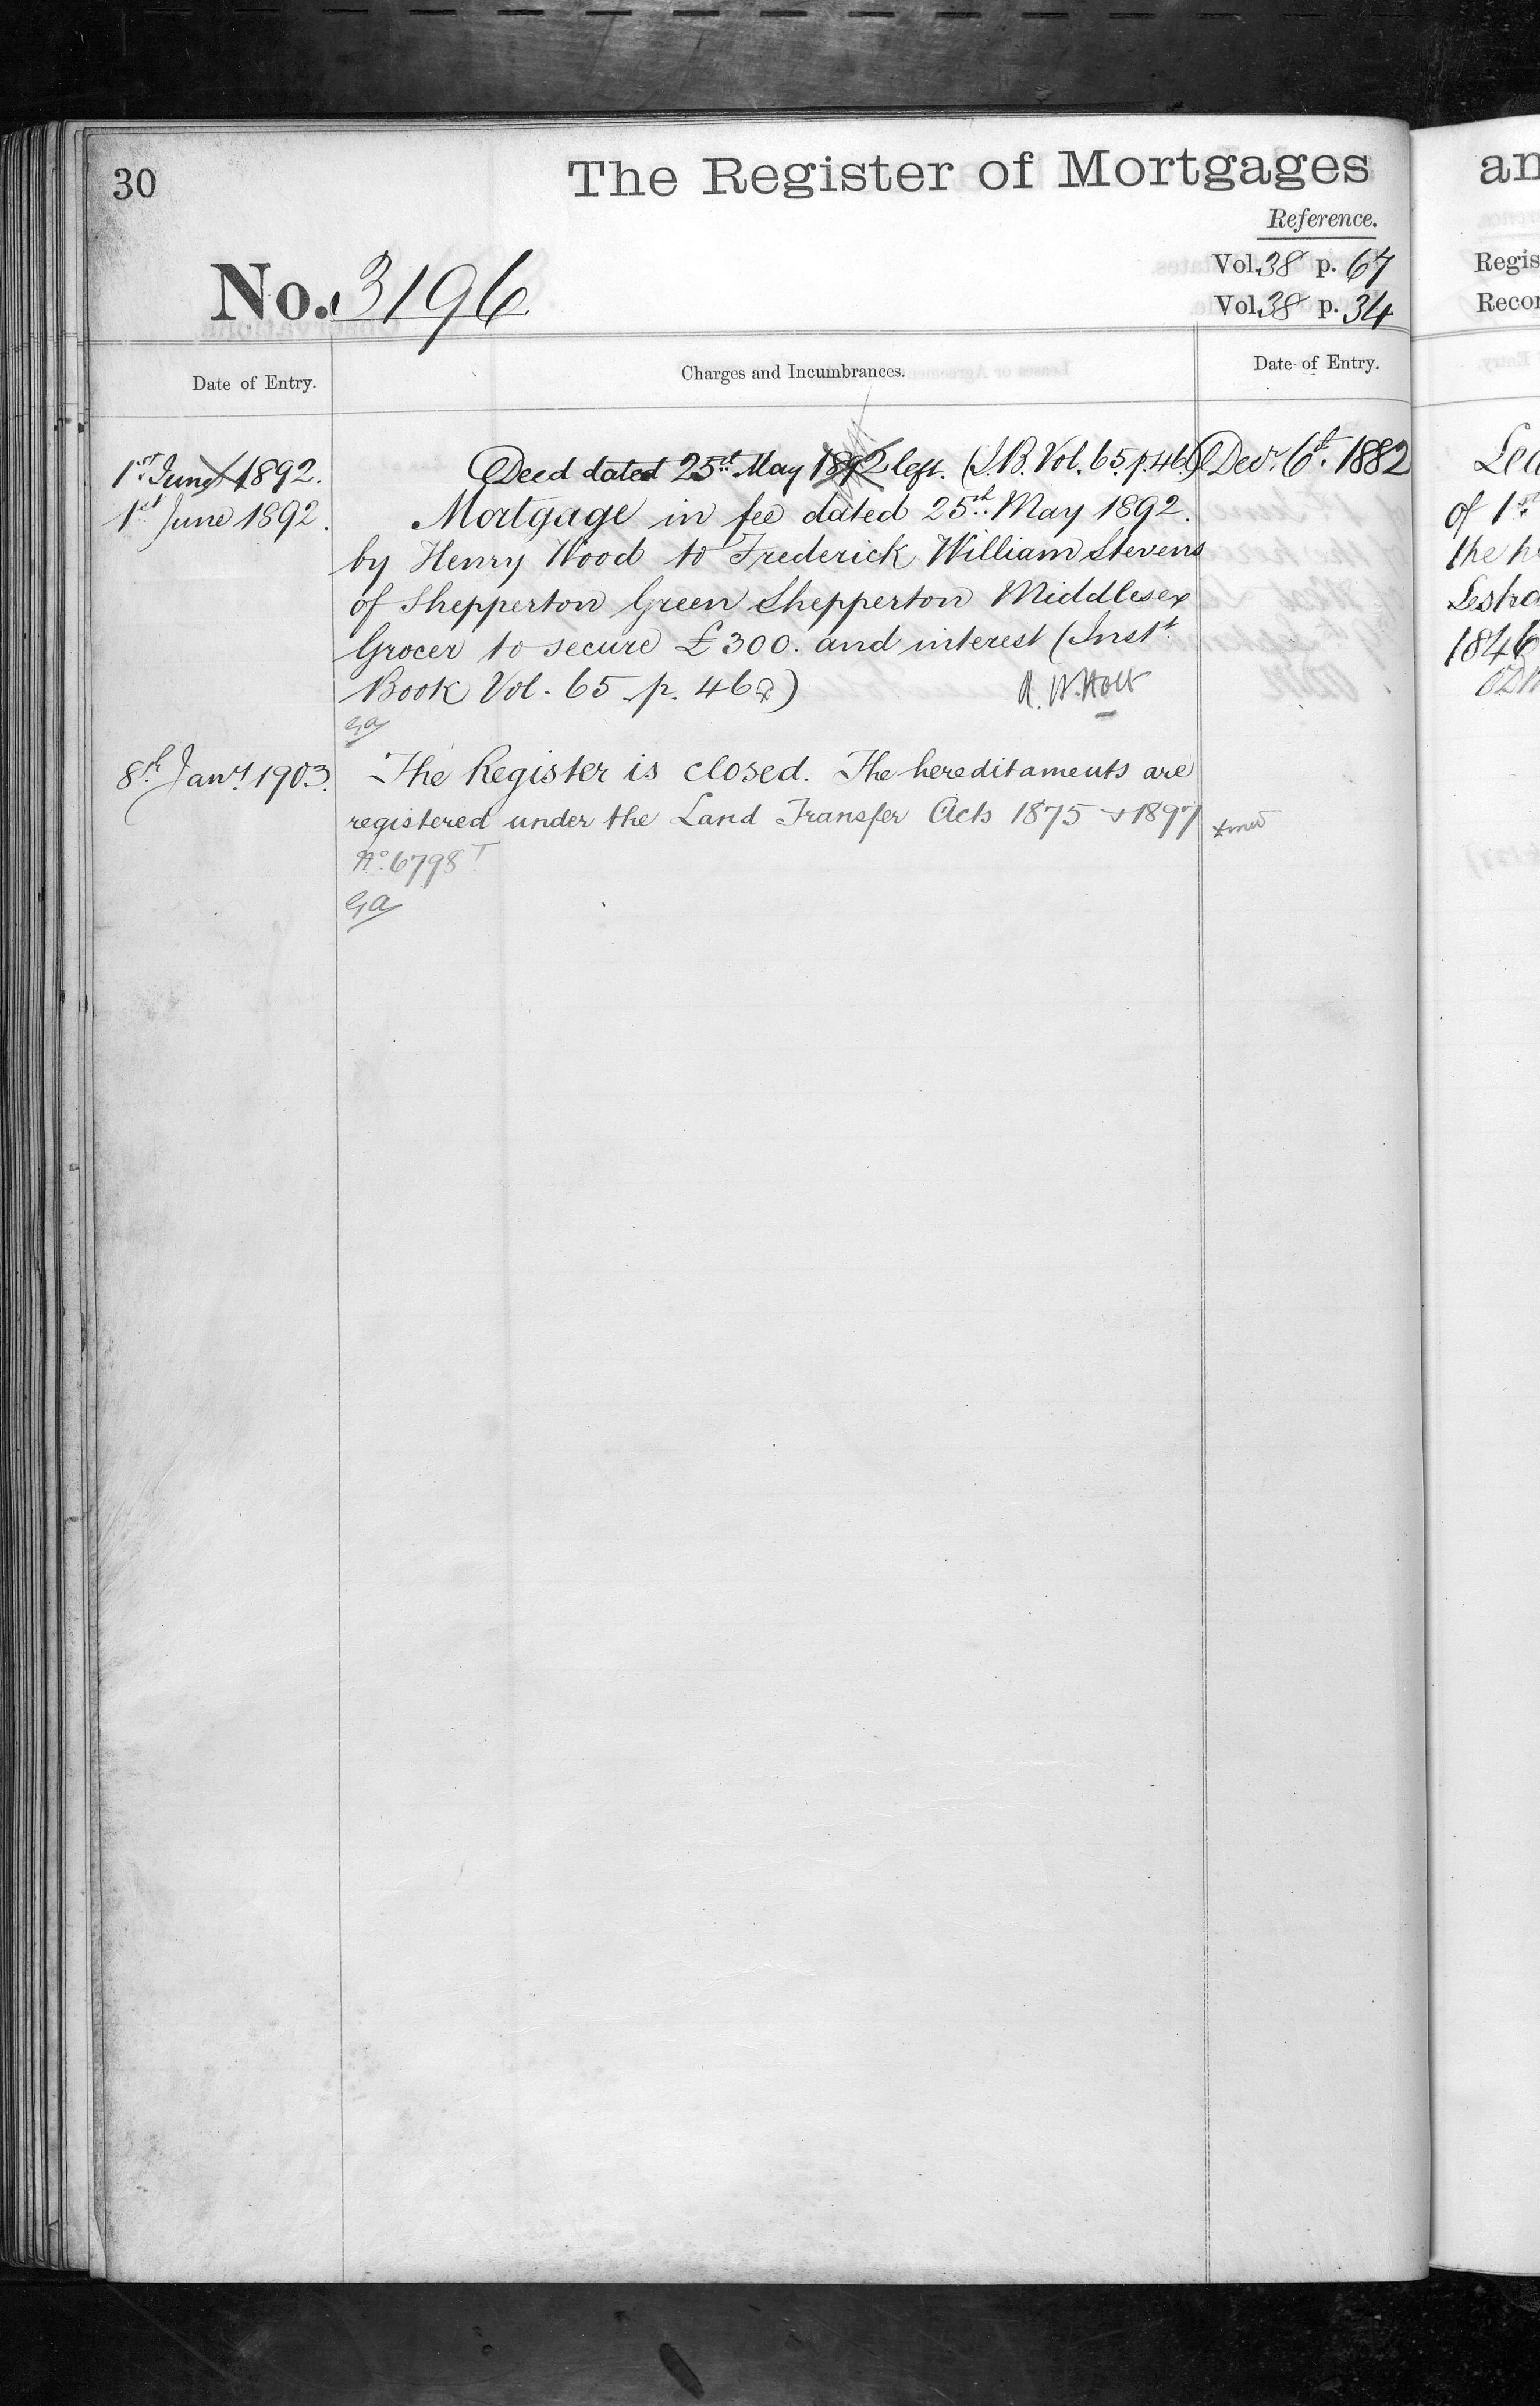 30
The Register of Mortgages
Reference.
No. 3196
Vol. 38 p. 67
Vol. 38 p. 34
Date of Entry.
Charges and Incumbrances.
Date of Entry.
1st June 1892.
Deed dated 25th May 1892 left. (I.B. Vol. 65 p. 46)
Decr. 6th. 1882
1st June 1892.
Mortgage in fee dated 25th May 1892.
by Henry Wood to Frederick William Stevens
of Shepperton Green Shepperton Middlesex
Grocer to secure £300. and interest (Instt.
Book Vol. 65 p. 46a)
ga
8th Jany. 1903.
The Register is closed. The hereditaments are
registered under the Land Transfer Acts 1875 & 1897
No. 6798 T
ga
an
Regis
Recor
Lea
of 1st
the h
Lestra
1846